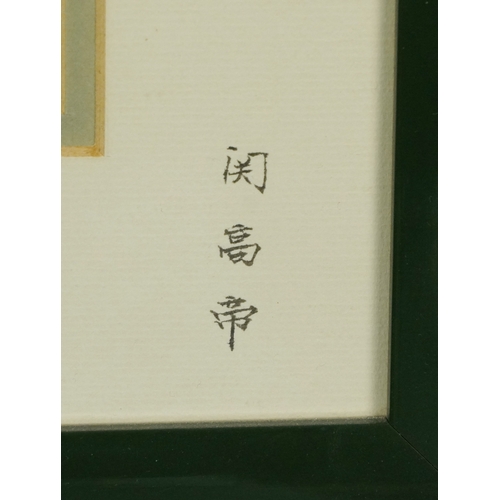 関高帝